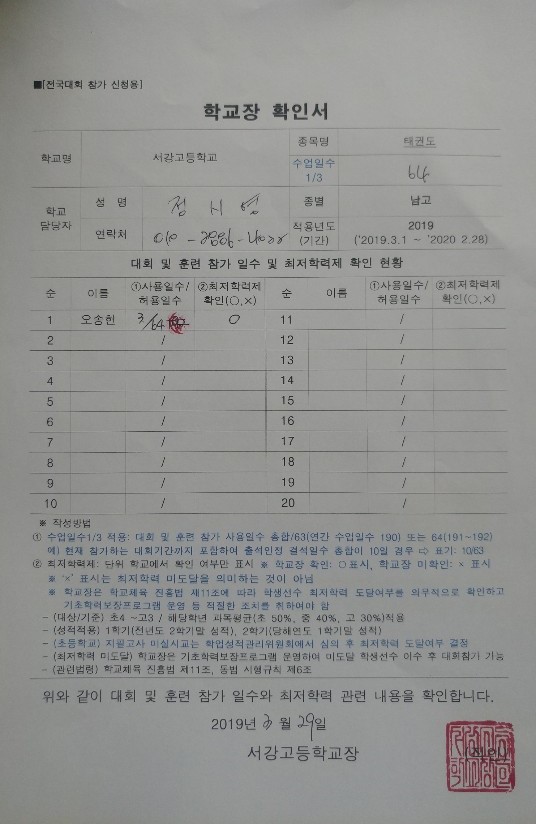 ■[전국대회 참가 신청용]
학교장 확인서
학교명 서강고등학교 종목명 태권도
수업일수 1/3 64
학교 담당자 성 명 정 시 영 종별 남고
연락처 010 적용년도 (기간) 2019 ('2019.3.1 ~ '2020 2.28)
대회 및 훈련 참가 일수 및 최저학력제 확인 현황
순 이름 ①사용일수/허용일수 ②최저학력제 확인(○,×) 순 이름 ①사용일수/허용일수 ②최저학력제 확인(○,×)
1 오송헌 3/64 ○ 11 /
2 / 12 /
3 / 13 /
4 / 14 /
5 / 15 /
6 / 16 /
7 / 17 /
8 / 18 /
9 / 19 /
10 / 20 /
※ 작성방법
① 수업일수1/3 적용: 대회 및 훈련 참가 사용일수 총합/63(연간 수업일수 190) 또는 64(191~192)
예) 현재 참가하는 대회기간까지 포함하여 출석인정 결석일수 총합이 10일 경우 ⇨ 표기: 10/63
② 최저학력제: 단위 학교에서 확인 여부만 표시 ※ 학교장 확인: ○표시, 학교장 미확인: × 표시
※ '×' 표시는 최저학력 미도달을 의미하는 것이 아님
※ 학교장은 학교체육 진흥법 제11조에 따라 학생선수 최저학력 도달여부를 의무적으로 확인하고
기초학력보장프로그램 운영 등 적절한 조치를 취하여야 함
- (대상/기준) 초4 ~고3 / 해당학년 과목평균(초 50%, 중 40%, 고 30%)적용
- (성적적용) 1학기(전년도 2학기말 성적), 2학기(당해연도 1학기말 성적)
- (초등학교) 지필고사 미실시교는 학업성적관리위원회에서 심의 후 최저학력 도달여부 결정
- (최저학력 미도달) 학교장은 기초학력보장프로그램 운영하여 미도달 학생선수 이수 후 대회참가 가능
- (관련법령) 학교체육 진흥법 제11조, 동법 시행규칙 제6조
위와 같이 대회 및 훈련 참가 일수와 최저학력 관련 내용을 확인합니다.
2019년 3 월 29일
서강고등학교장 (직인)